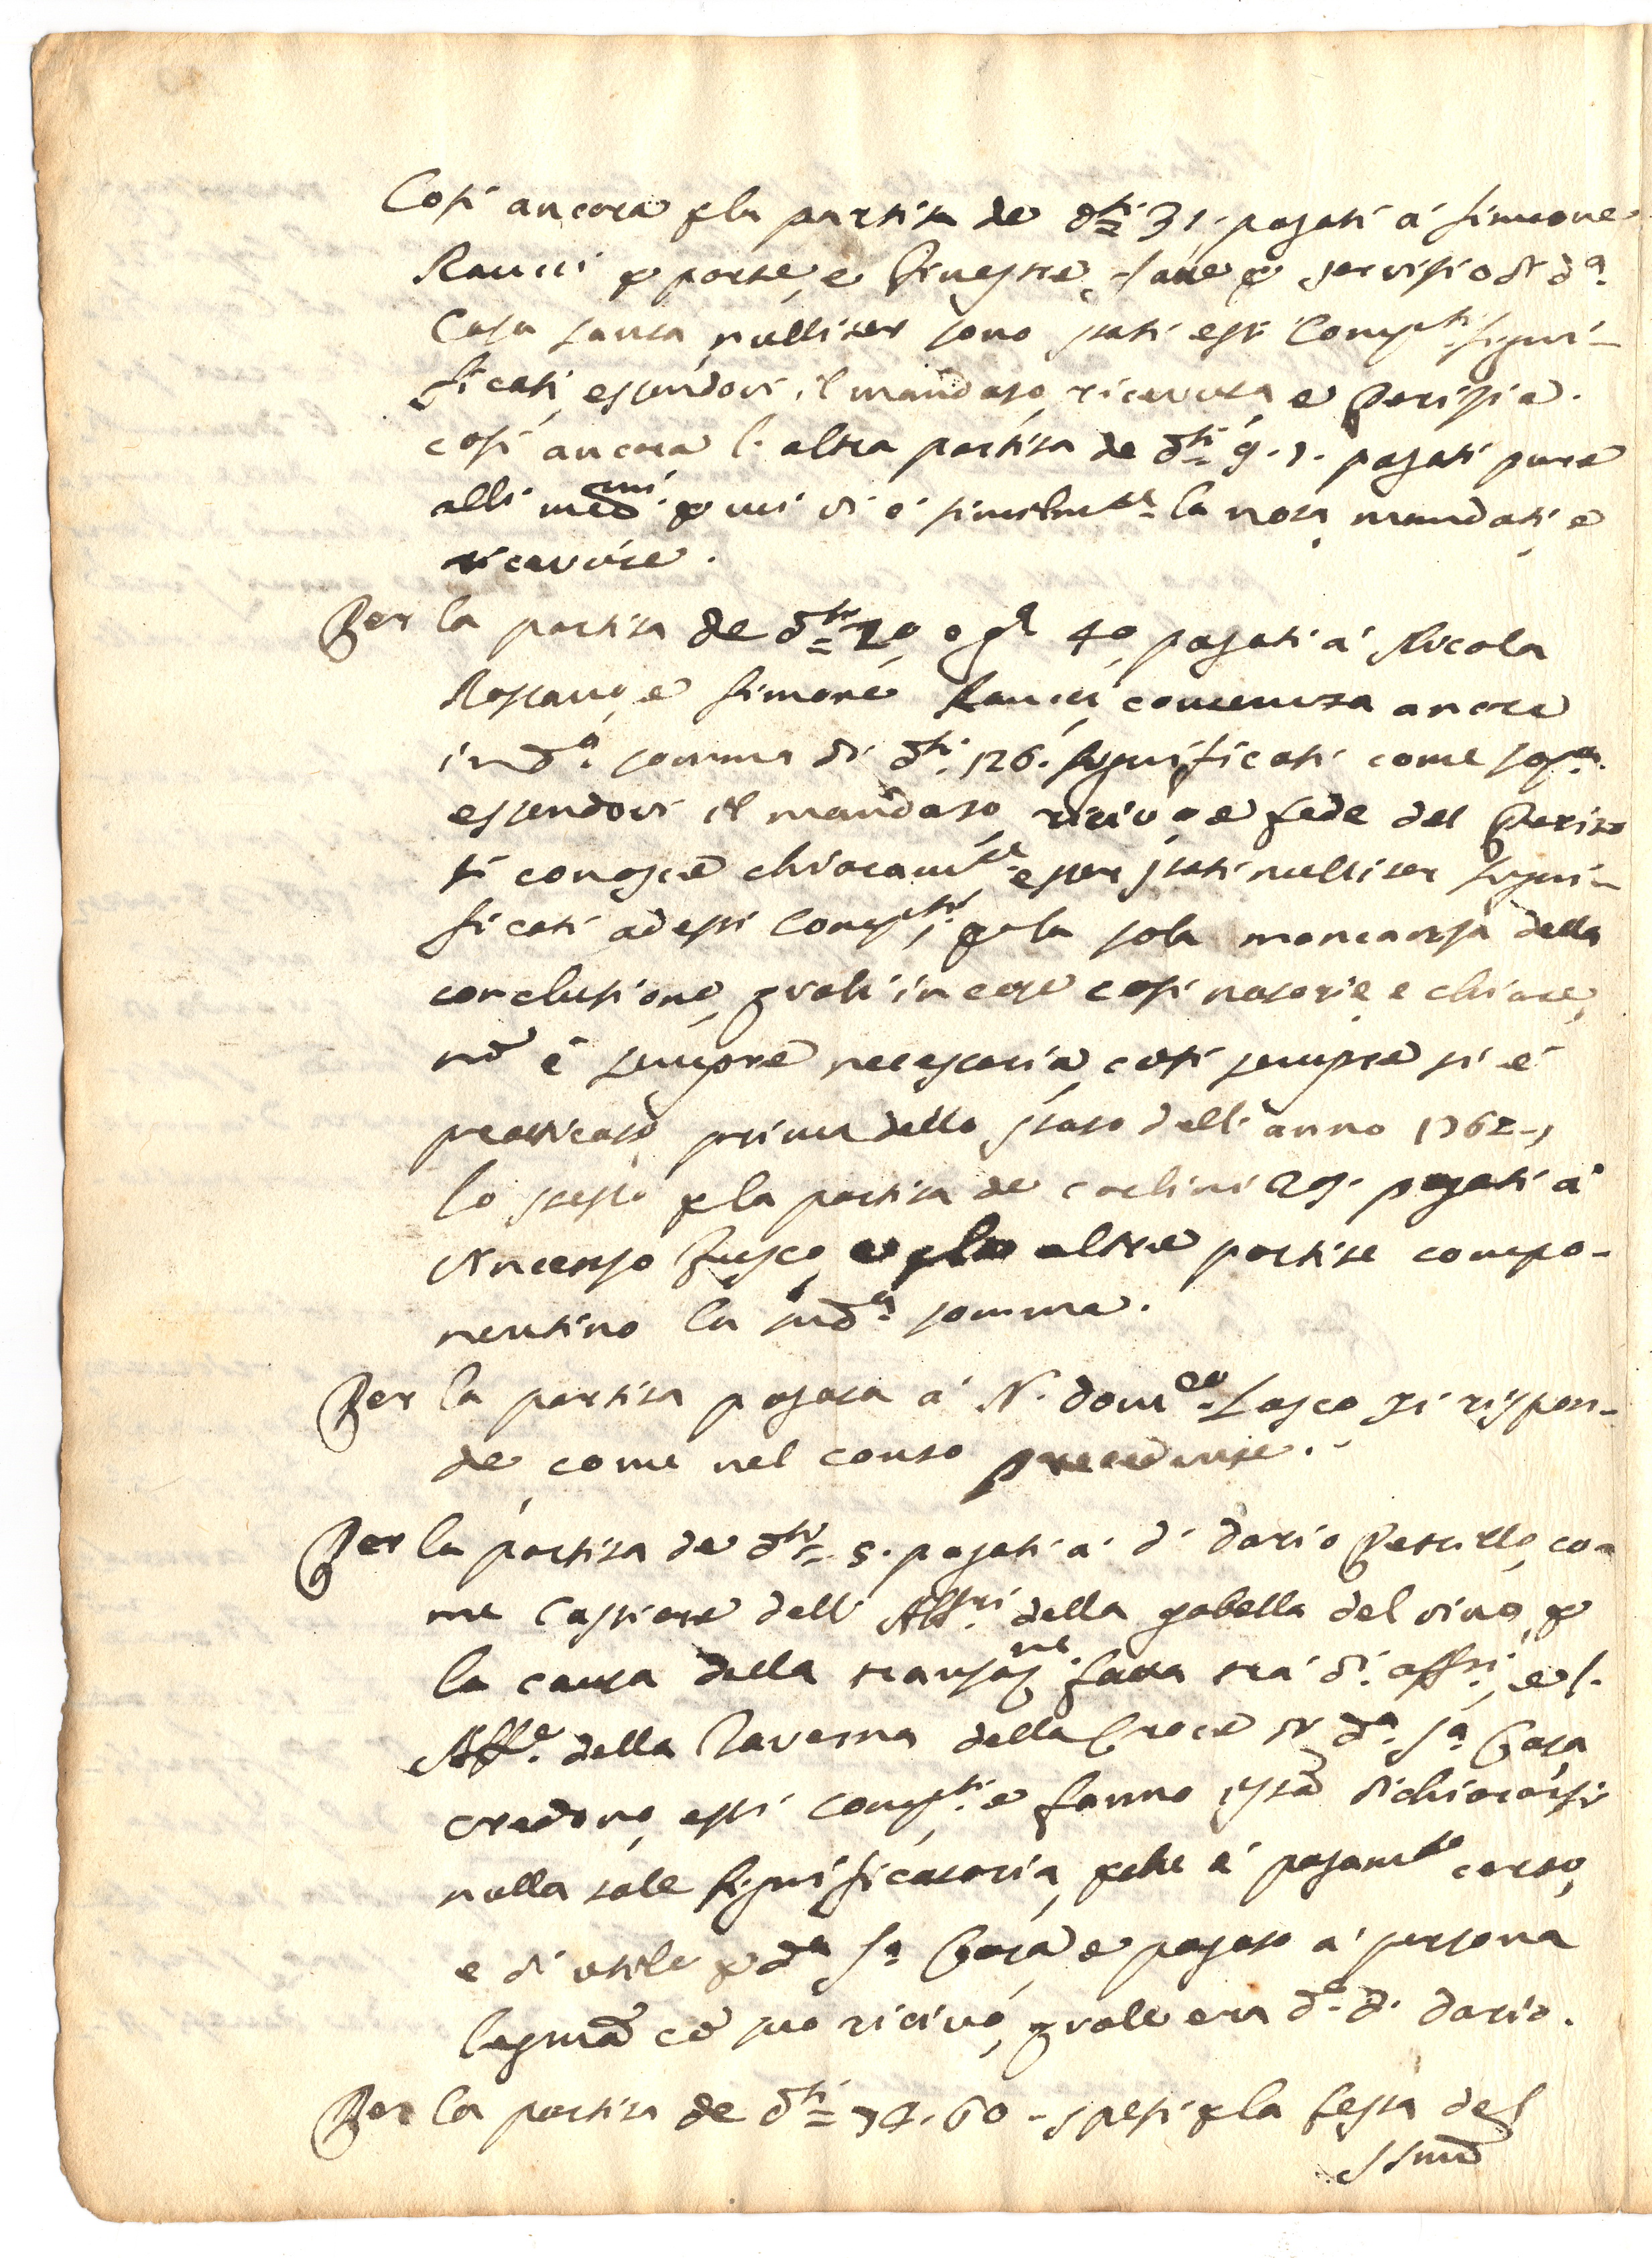 Così ancora p la partita de d.ti 31. pagati à Simeone
Raucci p porte, e finestre, fatte p servisio di d.a
Casa santa, nulliter sono stati essi Comp.ti signi-
ficati, essendovi il mandato, ricevuta, e Perisia.
così ancora l'altra partita de d.ti 9.1. pagati pure
alli med.mi p cui vi è similm.te la nota, mandati, e
ricevute.
Per la partita de d.ti 20, e g.a 40 pagati à Nicola
Rossano, e Simone Raucci, contenuta ancora
in d.a somma di d.ti 126. significati come sop.a
essendovi il mandato, ricivo, e fede del Perito
si conosce chiaram.te esser stati nulliter signi-
ficati ad essi Comp.ti, p la sola mancansa della
conclusione, quale in cose così notorie, e chiare,
nō è sempre necessaria, così sempre si è
pratticato, prima dello stato dell'anno 1762.,
lo stesso p la partita de carlini 29. pagati à
Vincenso Fusco, e p le altre partite compo-
nentino la sud.a somma.
Per la partita pagata à N. Dom.co Lasco, si rispon-
de come nel conto precedente.
Per la partita de d.ti 5. pagati à D. Dario Petrillo, co-
me Cassiere dell' Aff.ri della gabella del vino, p
la causa della transaz.ne fatta trà d.i aff.ri, e l'
Aff.e della Taverna della Croce di d.a S.a Casa
credono, essi Comp.ti, e fanno istā dichiararsi
nulla tale significatoria, p che è pagam.to certo,
e di utile p d.a S.a Casa, e pagato à persona
legmā cō suo ricivo, quale era d.o D. Dario.
Per la partita de d.ti 34.60 - spesi p la festa del
SSmō